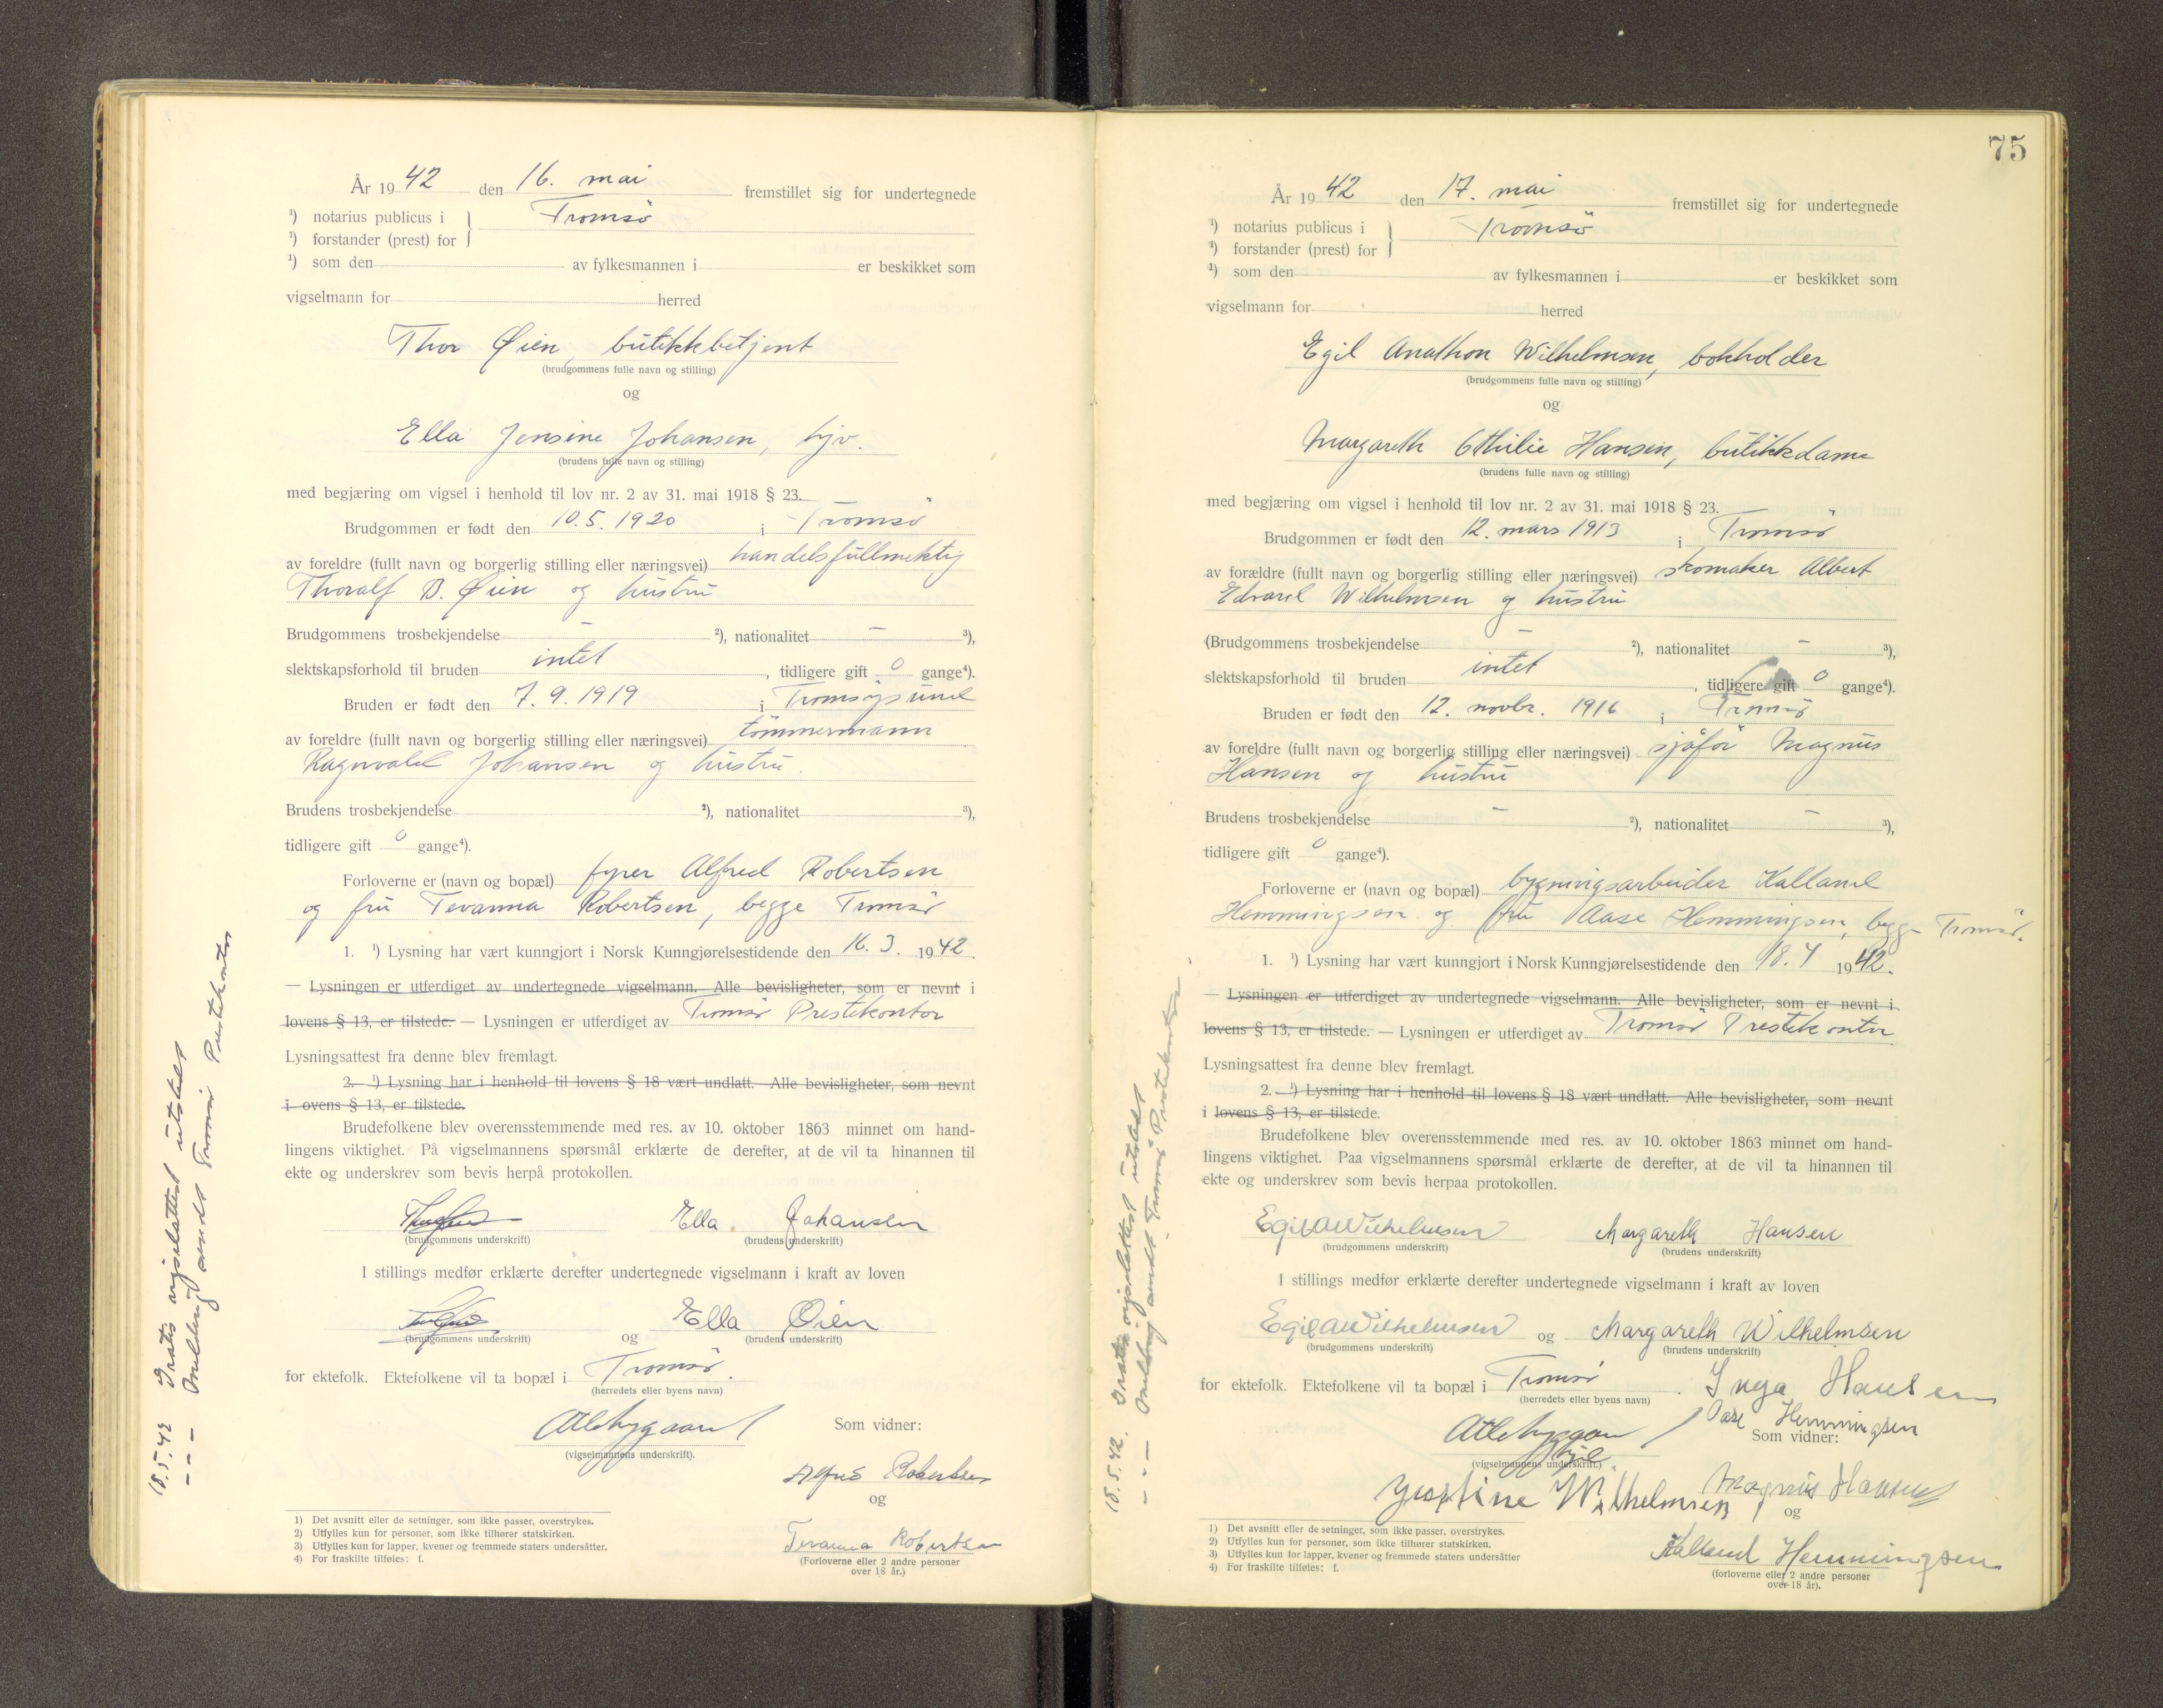 År 19 42 den 16. mai fremstillet sig for undertegnede
¹) notarius publicus i } Tromsö
¹) forstander (prest) for
¹) som den av fylkesmannen i er beskikket som
vigselmann for herred
Thor Øien, butikkbetjent
(brudgommens fulle navn og stilling)
og
Ella Jensine Johansen, hjv.
(brudens fulle navn og stilling)
med begjæring om vigsel i henhold til lov nr. 2 av 31. mai 1918 § 23.
Brudgommen er født den 10.5.1920 i Tromsö
av foreldre (fullt navn og borgerlig stilling eller næringsvei) handelsfullmektig
Thoralf B. Øien og hustru
Brudgommens trosbekjendelse – ²), nationalitet – ³),
slektskapsforhold til bruden intet , tidligere gift 0 gange⁴).
Bruden er født den 7.9.1919 i Tromsöysund
av foreldre (fullt navn og borgerlig stilling eller næringsvei) tömmermann
Ragnvald Johansen og hustru.
Brudens trosbekjendelse ²), nationalitet ³),
tidligere gift 0 gange⁴).
Forloverne er (navn og bopæl) fyrer Alfred Robertsen
og fru Tevanna Robertsen, begge Tromsö
1. ¹) Lysning har vært kunngjort i Norsk Kunngjørelsestidende den 16.3. 1942.
— Lysningen er utferdiget av undertegnede vigselmann. Alle bevisligheter, som er nevnt i
lovens § 13, er tilstede. — Lysningen er utferdiget av Tromsö Prestekontor
Lysningsattest fra denne blev fremlagt.
2. ¹) Lysning har i henhold til lovens § 18 vært undlatt. Alle bevisligheter, som nevnt
i ovens § 13, er tilstede.
Brudefolkene blev overensstemmende med res. av 10. oktober 1863 minnet om hand-
lingens viktighet. På vigselmannens spørsmål erklærte de derefter, at de vil ta hinannen til
ekte og underskrev som bevis herpå protokollen.
Ella Johansen
(brudgommens underskrift) (brudens underskrift)
I stillings medfør erklærte derefter undertegnede vigselmann i kraft av loven
og Ella Øien
(brudgommens underskrift) (brudens underskrift)
for ektefolk. Ektefolkene vil ta bopæl i Tromsö.
(herredets eller byens navn)
Som vidner:
(vigselmannens underskrift).
Alfred Robertsen
og
Tevanna Robertsen
(Forloverne eller 2 andre personer
over 18 år.)
1) Det avsnitt eller de setninger, som ikke passer, overstrykes.
2) Utfylles kun for personer, som ikke tilhører statskirken.
3) Utfylles kun for lapper, kvener og fremmede staters undersåtter.
4) For fraskilte tilføies: f.
18.5.42 Gratis vigselattest utstedt
– " – Melding sendt Tromsö Prestekontor
75
År 19 42 den 17. mai fremstillet sig for undertegnede
¹) notarius publicus i } Tromsö
¹) forstander (prest) for
¹) som den av fylkesmannen i er beskikket som
vigselmann for herred
Egil Anathon Wilhelmsen, bokholder
(brudgommens fulle navn og stilling)
og
Margareth Othilie Hansen, butikkdame
(brudens fulle navn og stilling)
med begjæring om vigsel i henhold til lov nr. 2 av 31. mai 1918 § 23.
Brudgommen er født den 12. mars 1913 i Tromsö
av forældre (fullt navn og borgerlig stilling eller næringsvei) skomaker Albert
Edvard Wilhelmsen og hustru
(Brudgommens trosbekjendelse – ²), nationalitet – ³),
slektskapsforhold til bruden intet , tidligere gift 0 gange⁴).
Bruden er født den 12. novbr. 1916 i Tromsö
av foreldre (fullt navn og borgerlig stilling eller næringsvei) sjåför Magnus
Hansen og hustru
Brudens trosbekjendelse – ²), nationalitet – ³),
tidligere gift 0 gange⁴).
Forloverne er (navn og bopæl) bygningsarbeider Halland
Hemmingsen og fru Aase Hemmingsen, begge Tromsö.
1. ¹) Lysning har vært kunngjort i Norsk Kunngjørelsestidende den 18.4 1942.
— Lysningen er utferdiget av undertegnede vigselmann. Alle bevisligheter, som er nevnt i
lovens § 13, er tilstede. — Lysningen er utferdiget av Tromsö Prestekontor
Lysningsattest fra denne blev fremlagt.
2. ¹) Lysning har i henhold til lovens § 18 vært undlatt. Alle bevisligheter, som nevnt
i lovens § 13, er tilstede.
Brudefolkene blev overensstemmende med res. av 10. oktober 1863 minnet om hand-
lingens viktighet. Paa vigselmannens spørsmål erklærte de derefter, at de vil ta hinannen til
ekte og underskrev som bevis herpaa protokollen.
Egil A Wilhelmsen Margareth Hansen
(brudgommens underskrift) (brudens underskrift)
I stillings medfør erklærte derefter undertegnede vigselmann i kraft av loven
Egil A Wilhelmsen og Margareth Wilhelmsen
(brudgommens underskrift) (brudens underskrift)
for ektefolk. Ektefolkene vil ta bopæl i Tromsö. Inga Hansen
(herredets eller byens navn)
Aase Hemmingsen
Som vidner:
(vigselmannens underskrift.)
Wilhelmsen Magnus Hansen
og
Halland Hemmingsen
(forloverne eller 2 andre personer
over 18 år).
1) Det avsnitt eller de setninger, som ikke passer, overstrykes.
2) Utfylles kun for personer, som ikke tilhører statskirken.
3) Utfylles kun for lapper, kvener og fremmede staters undersåtter
4) For fraskilte tilføies: f.
18.5.42. Gratis vigselattest utstedt
– " – Melding sendt Tromsö Prestekontor.